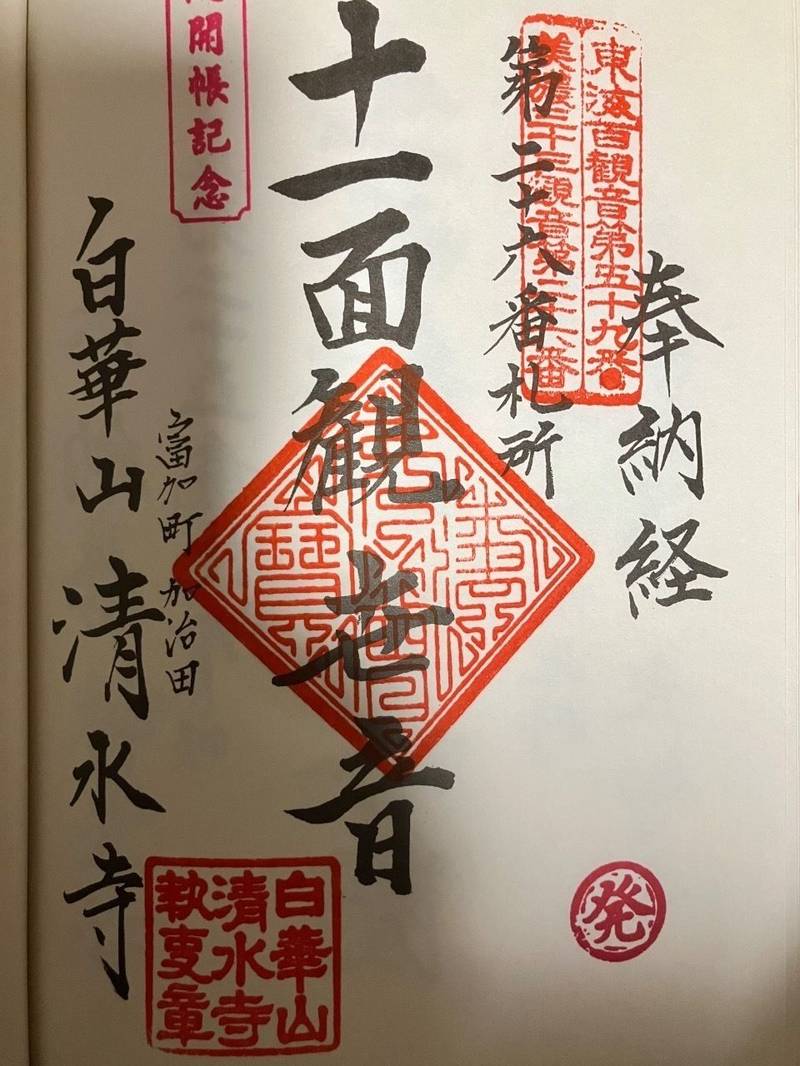 奉納経
東海百観音第五十九番
美濃三十三観音第二十六番
第二十六番札所
十一面観世音
開帳記念
富加町 加治田
白華山 清水寺
白華山
清水寺
執事章
発